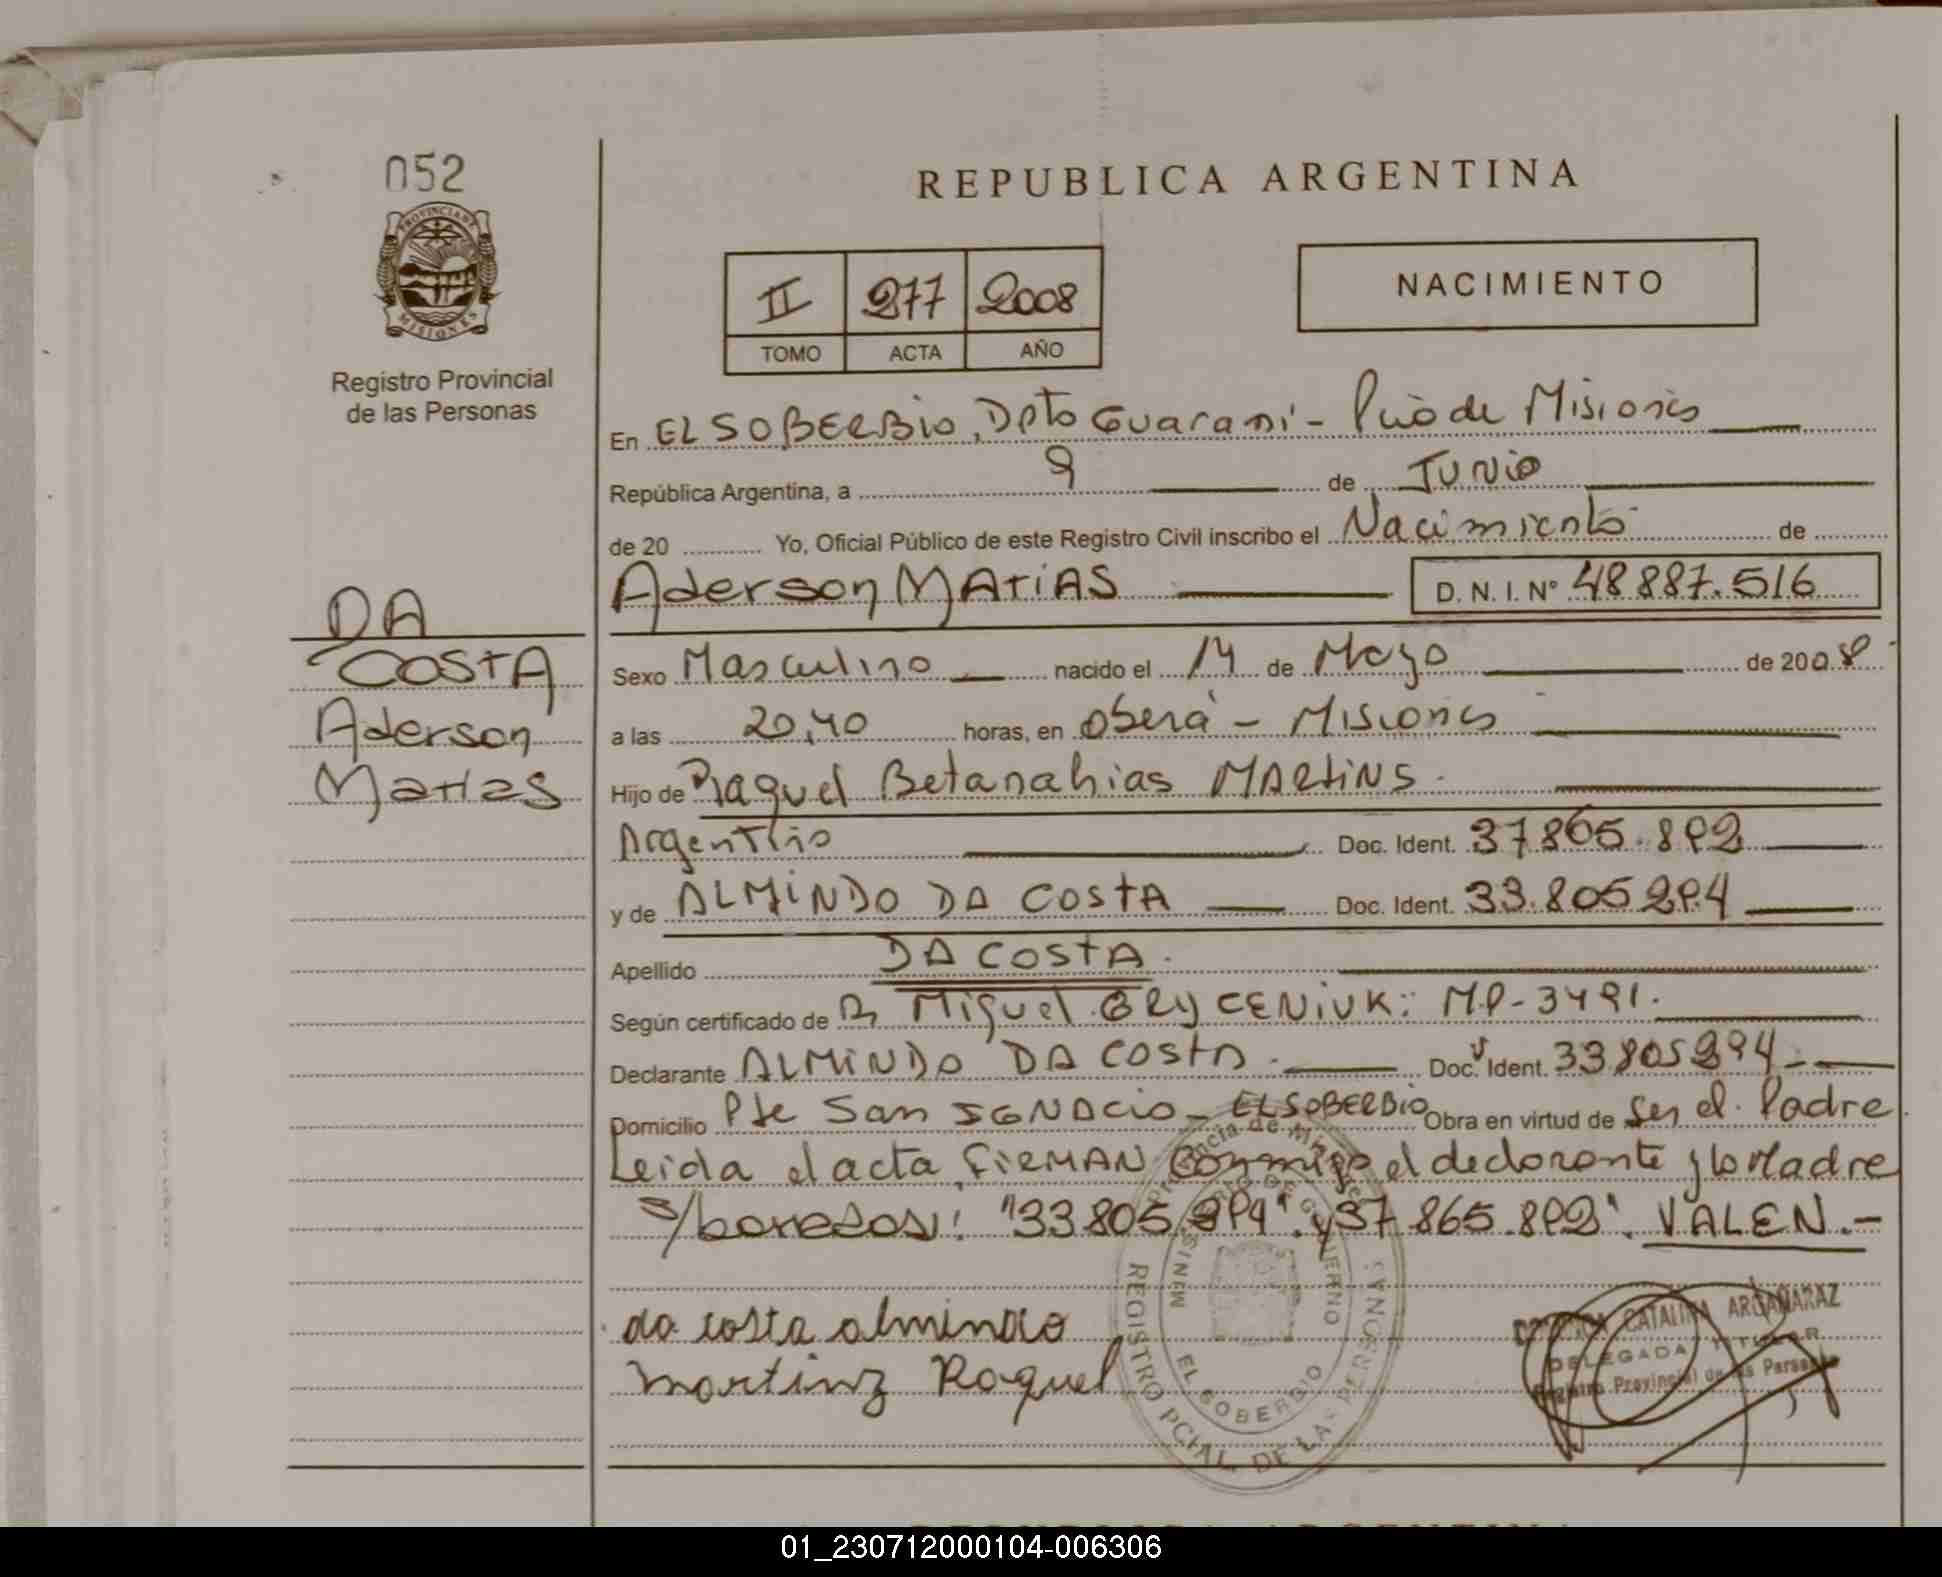 052
PROVINCIA DE
MISIONES
Registro Provincial
de las Personas
REPUBLICA ARGENTINA
II 277 2008
TOMO ACTA AÑO
NACIMIENTO
En EL SOBERBIO, Dpto Guaraní - Pciò de Misiones
República Argentina, a 9 de JUNio
de 20 Yo, Oficial Público de este Registro Civil inscribo el Nacimiento de
Aderson MATIAS D. N. I. Nº 48 887.516
DA
COSTA
Aderson
Matias
Sexo Masculino nacido el 14 de Mayo de 2008
a las 20,40 horas, en Oberá - Misiones
Hijo de Raquel Betanahias MARTiNS.
Argentino Doc. Ident. 37865.892
y de ALMiNDO DA COSTA Doc. Ident. 33.805294
Apellido DA COSTA.
Según certificado de Dr Miguel GRYCENiUK: M.P-3491.
Declarante ALMiNDO DA COSTA. Doc. Ident. 33805294-
Domicilio Pje San IGNAcio - EL SOBERBIO Obra en virtud de Ser el Padre
Leida el acta, FiRMAN conmigo el declarante y la Madre
s/borrados: "33.805.294" y "37.865.892". VALEN.-
da costa almindo
martinz Raquel
Provincia de Misiones
MINISTERIO DE GOBIERNO
EL SOBERBIO
REGISTRO PCIAL. DE LAS PERSONAS
CATALINA ARGAÑARAZ
DELEGADA TITULAR
Registro Provincial de las Personas
01_230712000104-006306